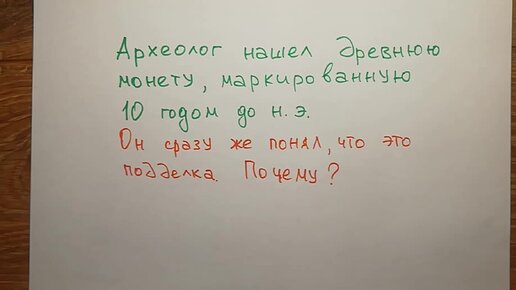 Археолог нашел древнюю
монету, маркированную
10 годом до н.э.
Он сразу же понял, что это
подделка. Почему?